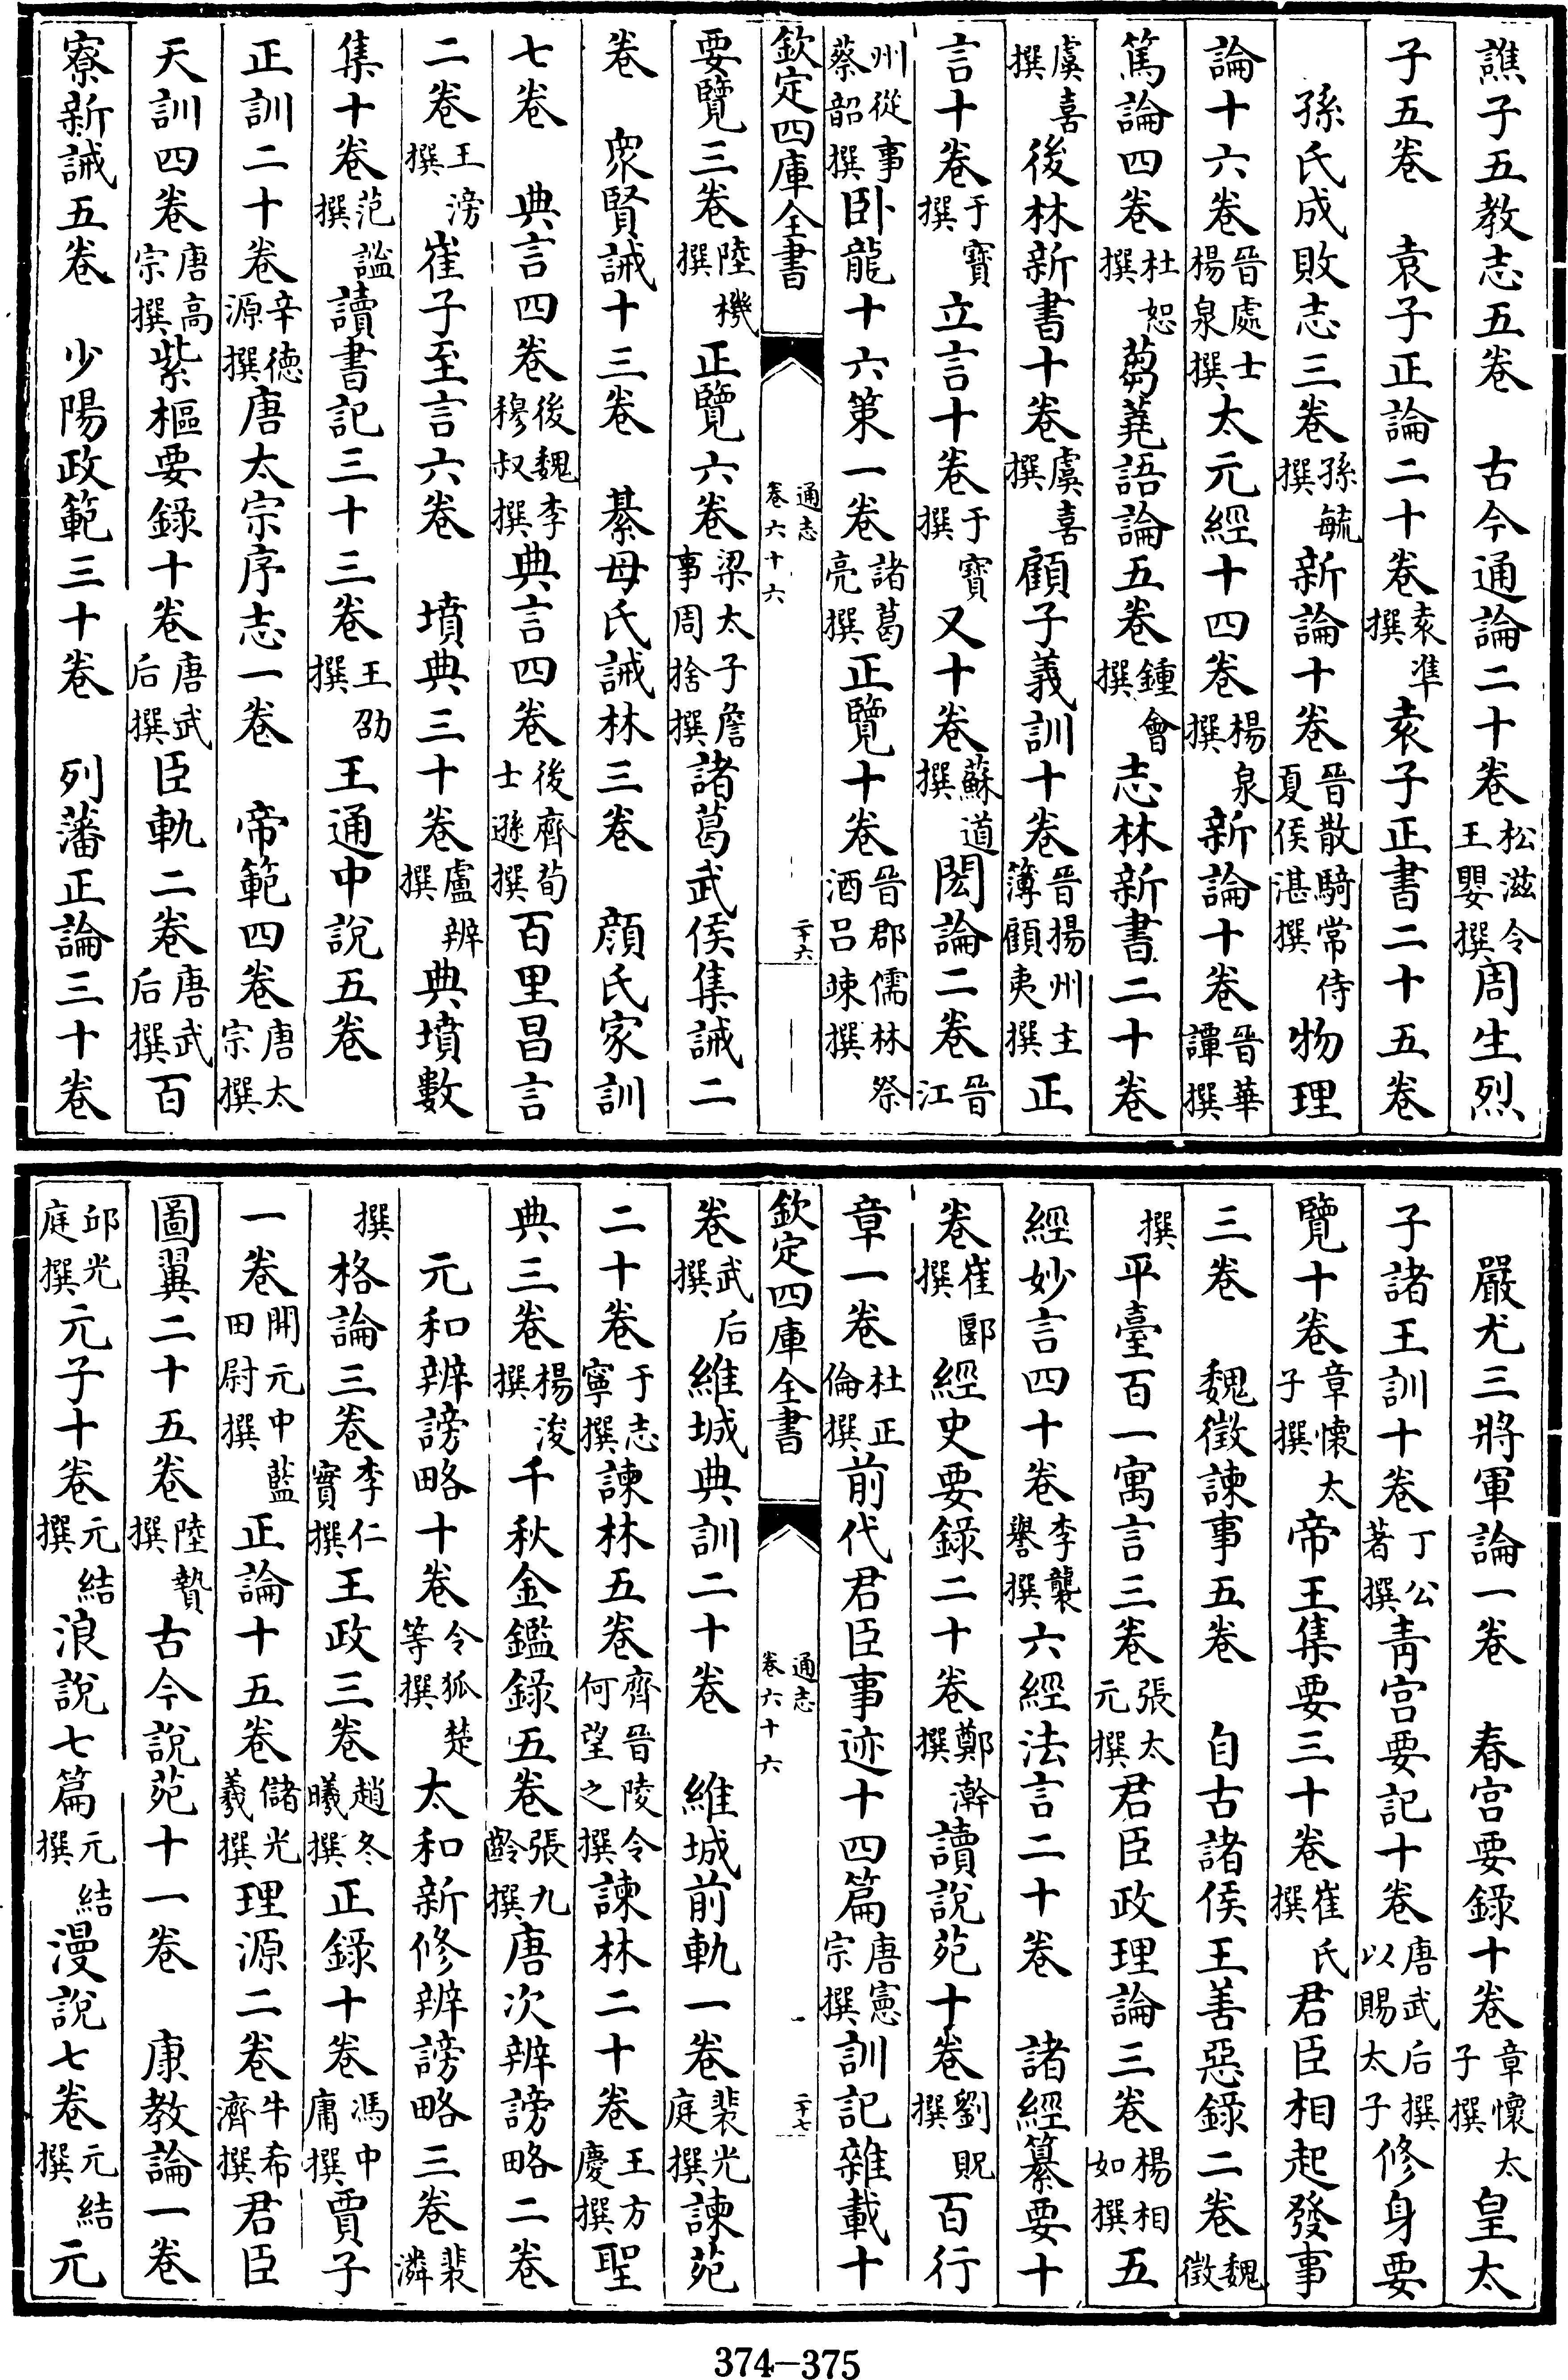 譙子五教志五卷　古今通論二十卷松滋令王嬰撰周生烈
子五卷　袁子正論二十卷袁準撰袁子正書二十五卷
孫氏成敗志三卷孫毓撰新論十卷晉散騎常侍夏侯湛撰物理
論十六卷晉處士楊泉撰太元經十四卷楊泉撰新論十卷晉華譚撰
篤論四卷杜恕撰芻蕘語論五卷鍾會撰志林新書二十卷
虞喜撰後林新書十卷虞喜撰顧子義訓十卷晉揚州主簿顧夷撰正
言十卷于寶撰立言十卷于寶撰又十卷蘇道撰閎論二卷晉江
州從事蔡韶撰卧龍十六策一卷諸葛亮撰正覽十卷晉郡儒林祭酒呂竦撰
欽定四庫全書　通志卷六十六　二十六
要覽三卷陸機撰正覽六卷梁太子詹事周捨撰諸葛武侯集誡二
卷　衆賢誡十三卷　綦母氏誡林三卷　顔氏家訓
七卷　典言四卷後魏李穆叔撰典言四卷後齊荀士遜撰百里昌言
二卷王滂撰崔子至言六卷　墳典三十卷盧辨撰典墳數
集十卷范謐撰讀書記三十三卷王劭撰王通中說五卷
正訓二十卷辛德源撰唐太宗序志一卷　帝範四卷唐太宗撰
天訓四卷唐高宗撰紫樞要錄十卷唐武后撰臣軌二卷唐武后撰百
寮新誡五卷　少陽政範三十卷　列藩正論三十卷
嚴尤三將軍論一卷　春宮要錄十卷章懷太子撰皇太
子諸王訓十卷丁公著撰青宮要記十卷唐武后撰以賜太子修身要
覽十卷章懷太子撰帝王集要三十卷崔氏撰君臣相起發事
三卷　魏徵諫事五卷　自古諸侯王善惡錄二卷魏徵
撰平臺百一寓言三卷張太元撰君臣政理論三卷楊相如撰五
經妙言四十卷李襲譽撰六經法言二十卷　諸經纂要十
卷崔郾撰經史要錄二十卷鄭澣撰讀說苑十卷劉貺撰百行
章一卷杜正倫撰前代君臣事迹十四篇唐憲宗撰訓記雜載十
欽定四庫全書　通志卷六十六　二十七
卷武后撰維城典訓二十卷　維城前軌一卷裴光庭撰諫苑
二十卷于志寧撰諫林五卷齊晉陵令何望之撰諫林二十卷王方慶撰聖
典三卷楊浚撰千秋金鑑錄五卷張九齡撰唐次辨謗略二卷
元和辨謗略十卷令狐楚等撰太和新修辨謗略三卷裴潾
撰格論三卷李仁實撰王政三卷趙冬曦撰正錄十卷馮中庸撰賈子
一卷開元中藍田尉撰正論十五卷儲光羲撰理源二卷牛希濟撰君臣
圖翼二十五卷陸贄撰古今說苑十一卷　康教論一卷
邱光庭撰元子十卷元結撰浪說七篇元結撰漫說七卷元結撰元
374-375